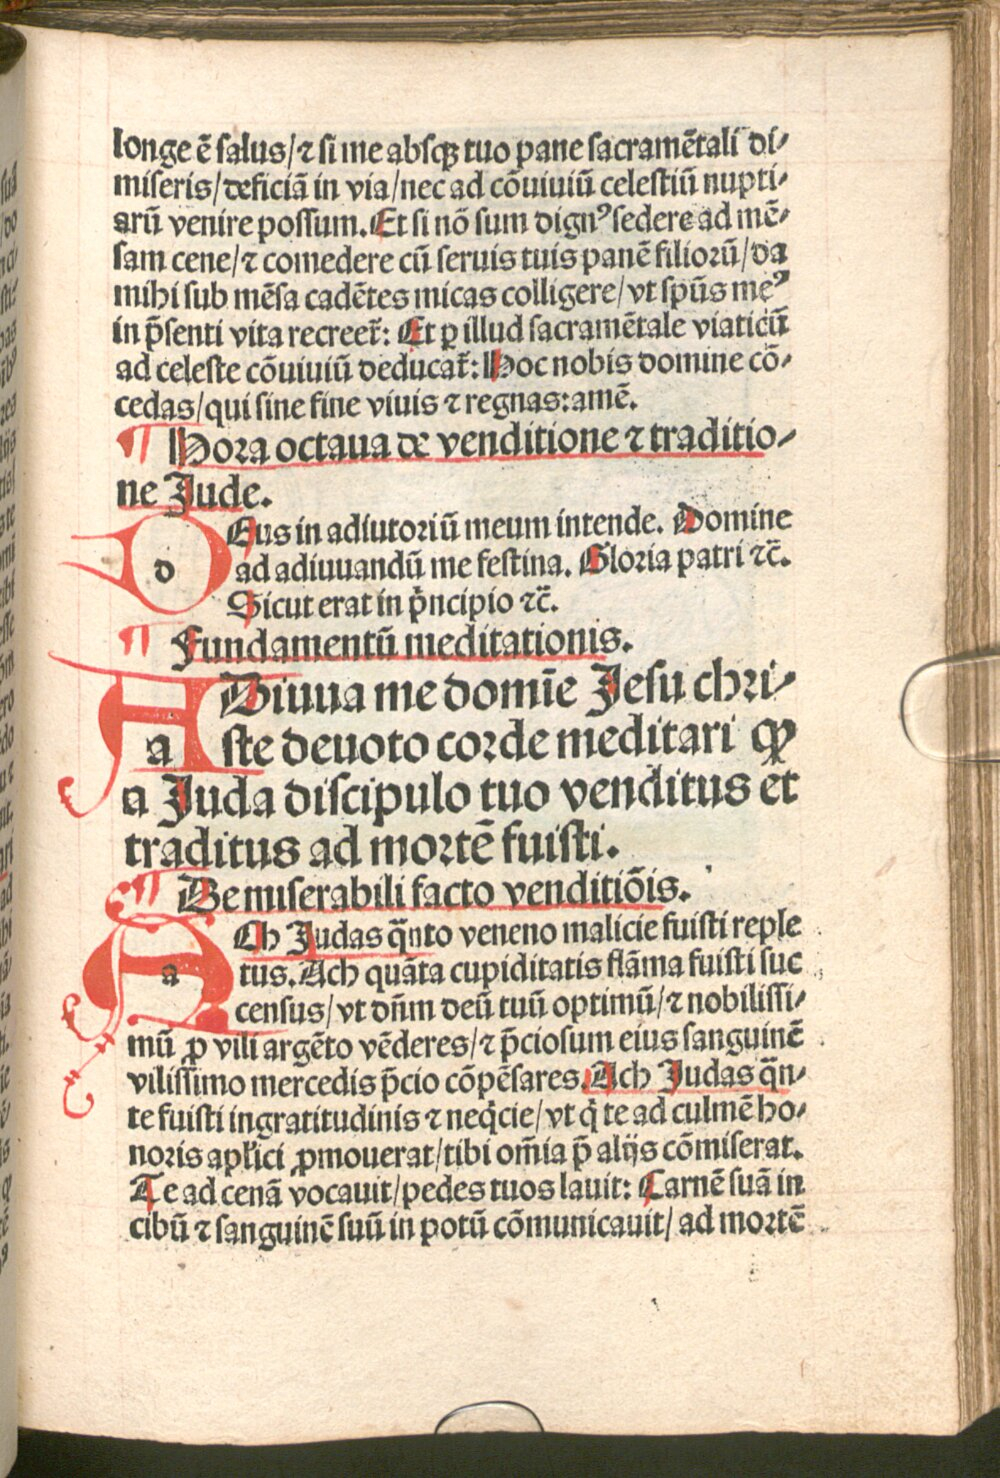 longe ē salus/ ⁊ si me absqꝫ tuo pane sacramētali di⸗
miseris/ deficiā in via/ nec ad cōuiuiū celestiū nupti⸗
arū venire possum. Et si nō sum dignꝰ sedere ad mē⸗
sam cene/ ⁊ comedere cū seruis tuis panē filiorū/ da
mihi sub mēsa cadētes micas colligere/ vt spūs meꝰ
in p̄senti vita recreet̄: Et ꝑ illud sacramētale viaticū
ad celeste cōuiuiū deducat̄: Hoc nobis domine cō⸗
cedas/ qui sine fine viuis ⁊ regnas: amē.
¶ Hora octaua de venditione ⁊ traditio⸗
ne Jude.
dEus in adiutoriū meum intende. Domine
ad adiuuandū me festina. Gloria patri ⁊c̄.
Sicut erat in p̄ncipio ⁊c̄.
¶ Fundamentū meditationis.
aDiuua me domīe Jesu chri⸗
ste deuoto corde meditari ꝙ
a Juda discipulo tuo venditus et
traditus ad mortē fuisti.
¶ De miserabili facto venditiōis.
aCh Judas q̄nto veneno malicie fuisti reple
tus. Ach quāta cupiditatis flāma fuisti suc
census/ vt dn̄m deū tuū optimū/ ⁊ nobilissi⸗
mū ꝓ vili argēto vēderes/ ⁊ p̄ciosum eius sanguinē
vilissimo mercedis p̄cio cōpēsares. Ach Judas q̄n⸗
te fuisti ingratitudinis ⁊ neq̄cie/ vt q̄ te ad culmē ho⸗
noris apl̄ici ꝓmouerat/ tibi om̄ia p̄ alijs cōmiserat.
Te ad cenā vocauit/ pedes tuos lauit: Carnē suā in
cibū ⁊ sanguinē suū in potū cōmunicauit/ ad mortē